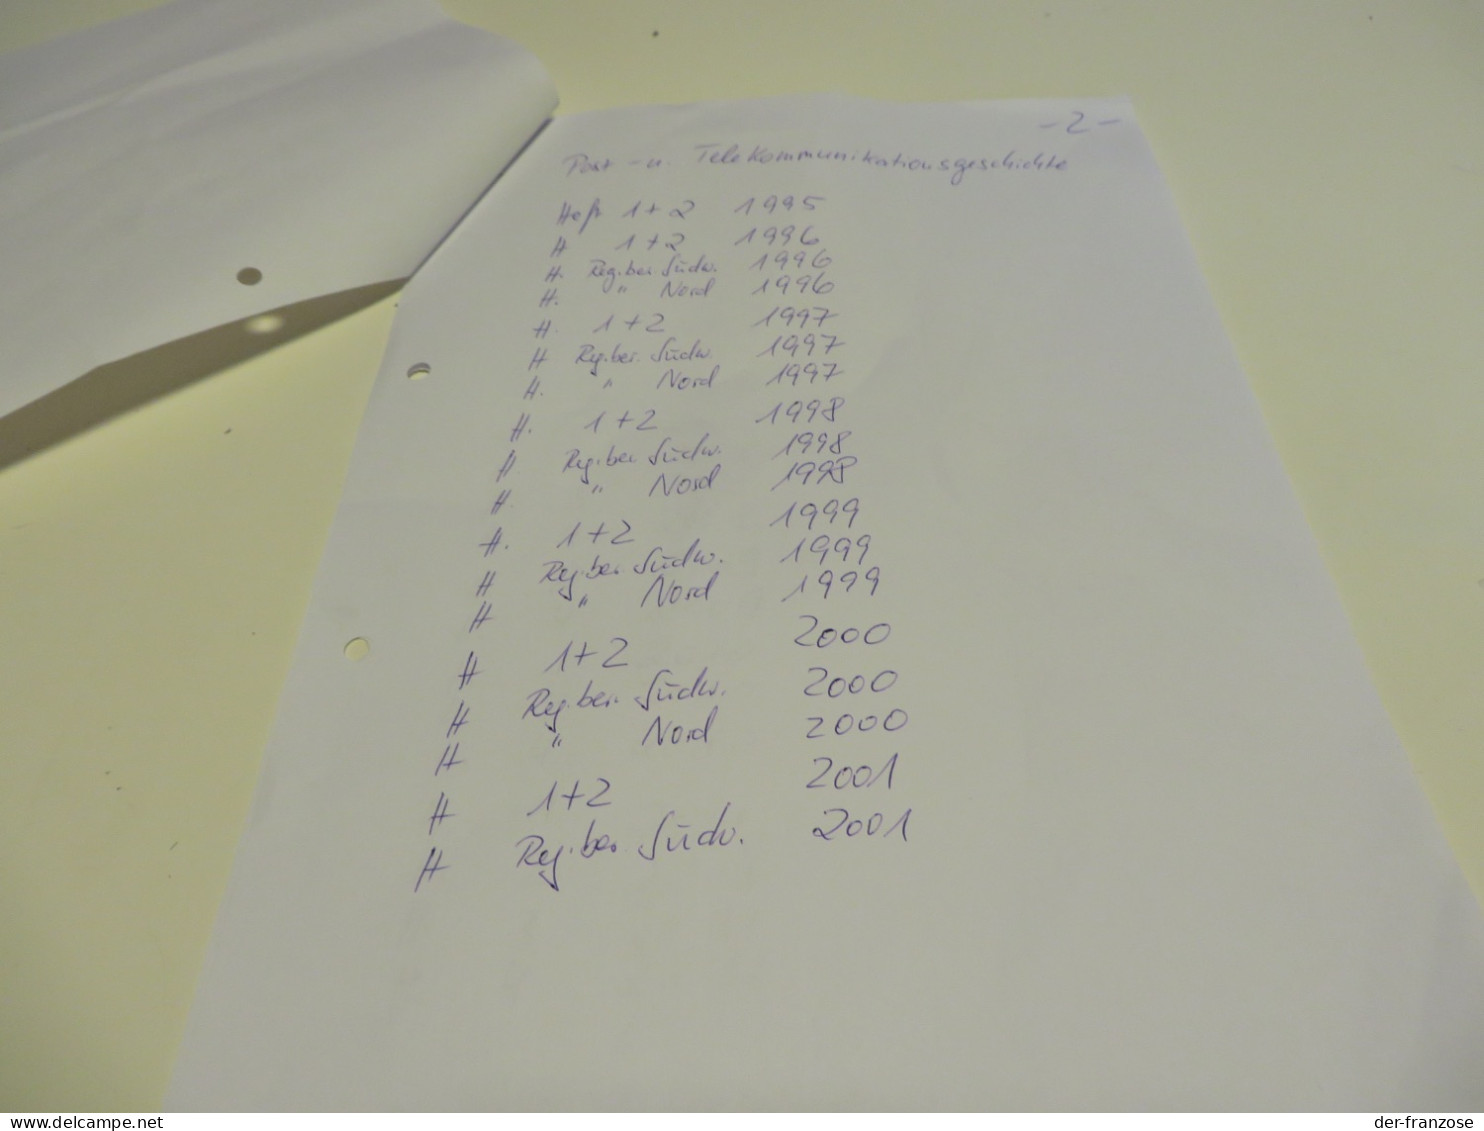 - 2 -
Post - u. Telekommunikationsgeschichte
Heft 1 + 2 1995
H 1 + 2 1996
H. Reg.ber. Südw. 1996
H. " Nord 1996
H. 1 + 2 1997
H Reg.ber. Südw. 1997
H. " Nord 1997
H. 1 + 2 1998
H Reg.ber Südw. 1998
H. " Nord 1998
H. 1 + 2 1999
H Reg.ber Südw. 1999
H " Nord 1999
H 1 + 2 2000
H Reg.ber. Südw. 2000
H " Nord 2000
H 1 + 2 2001
H Reg.ber. Südw. 2001
www.delcampe.net
der-franzose